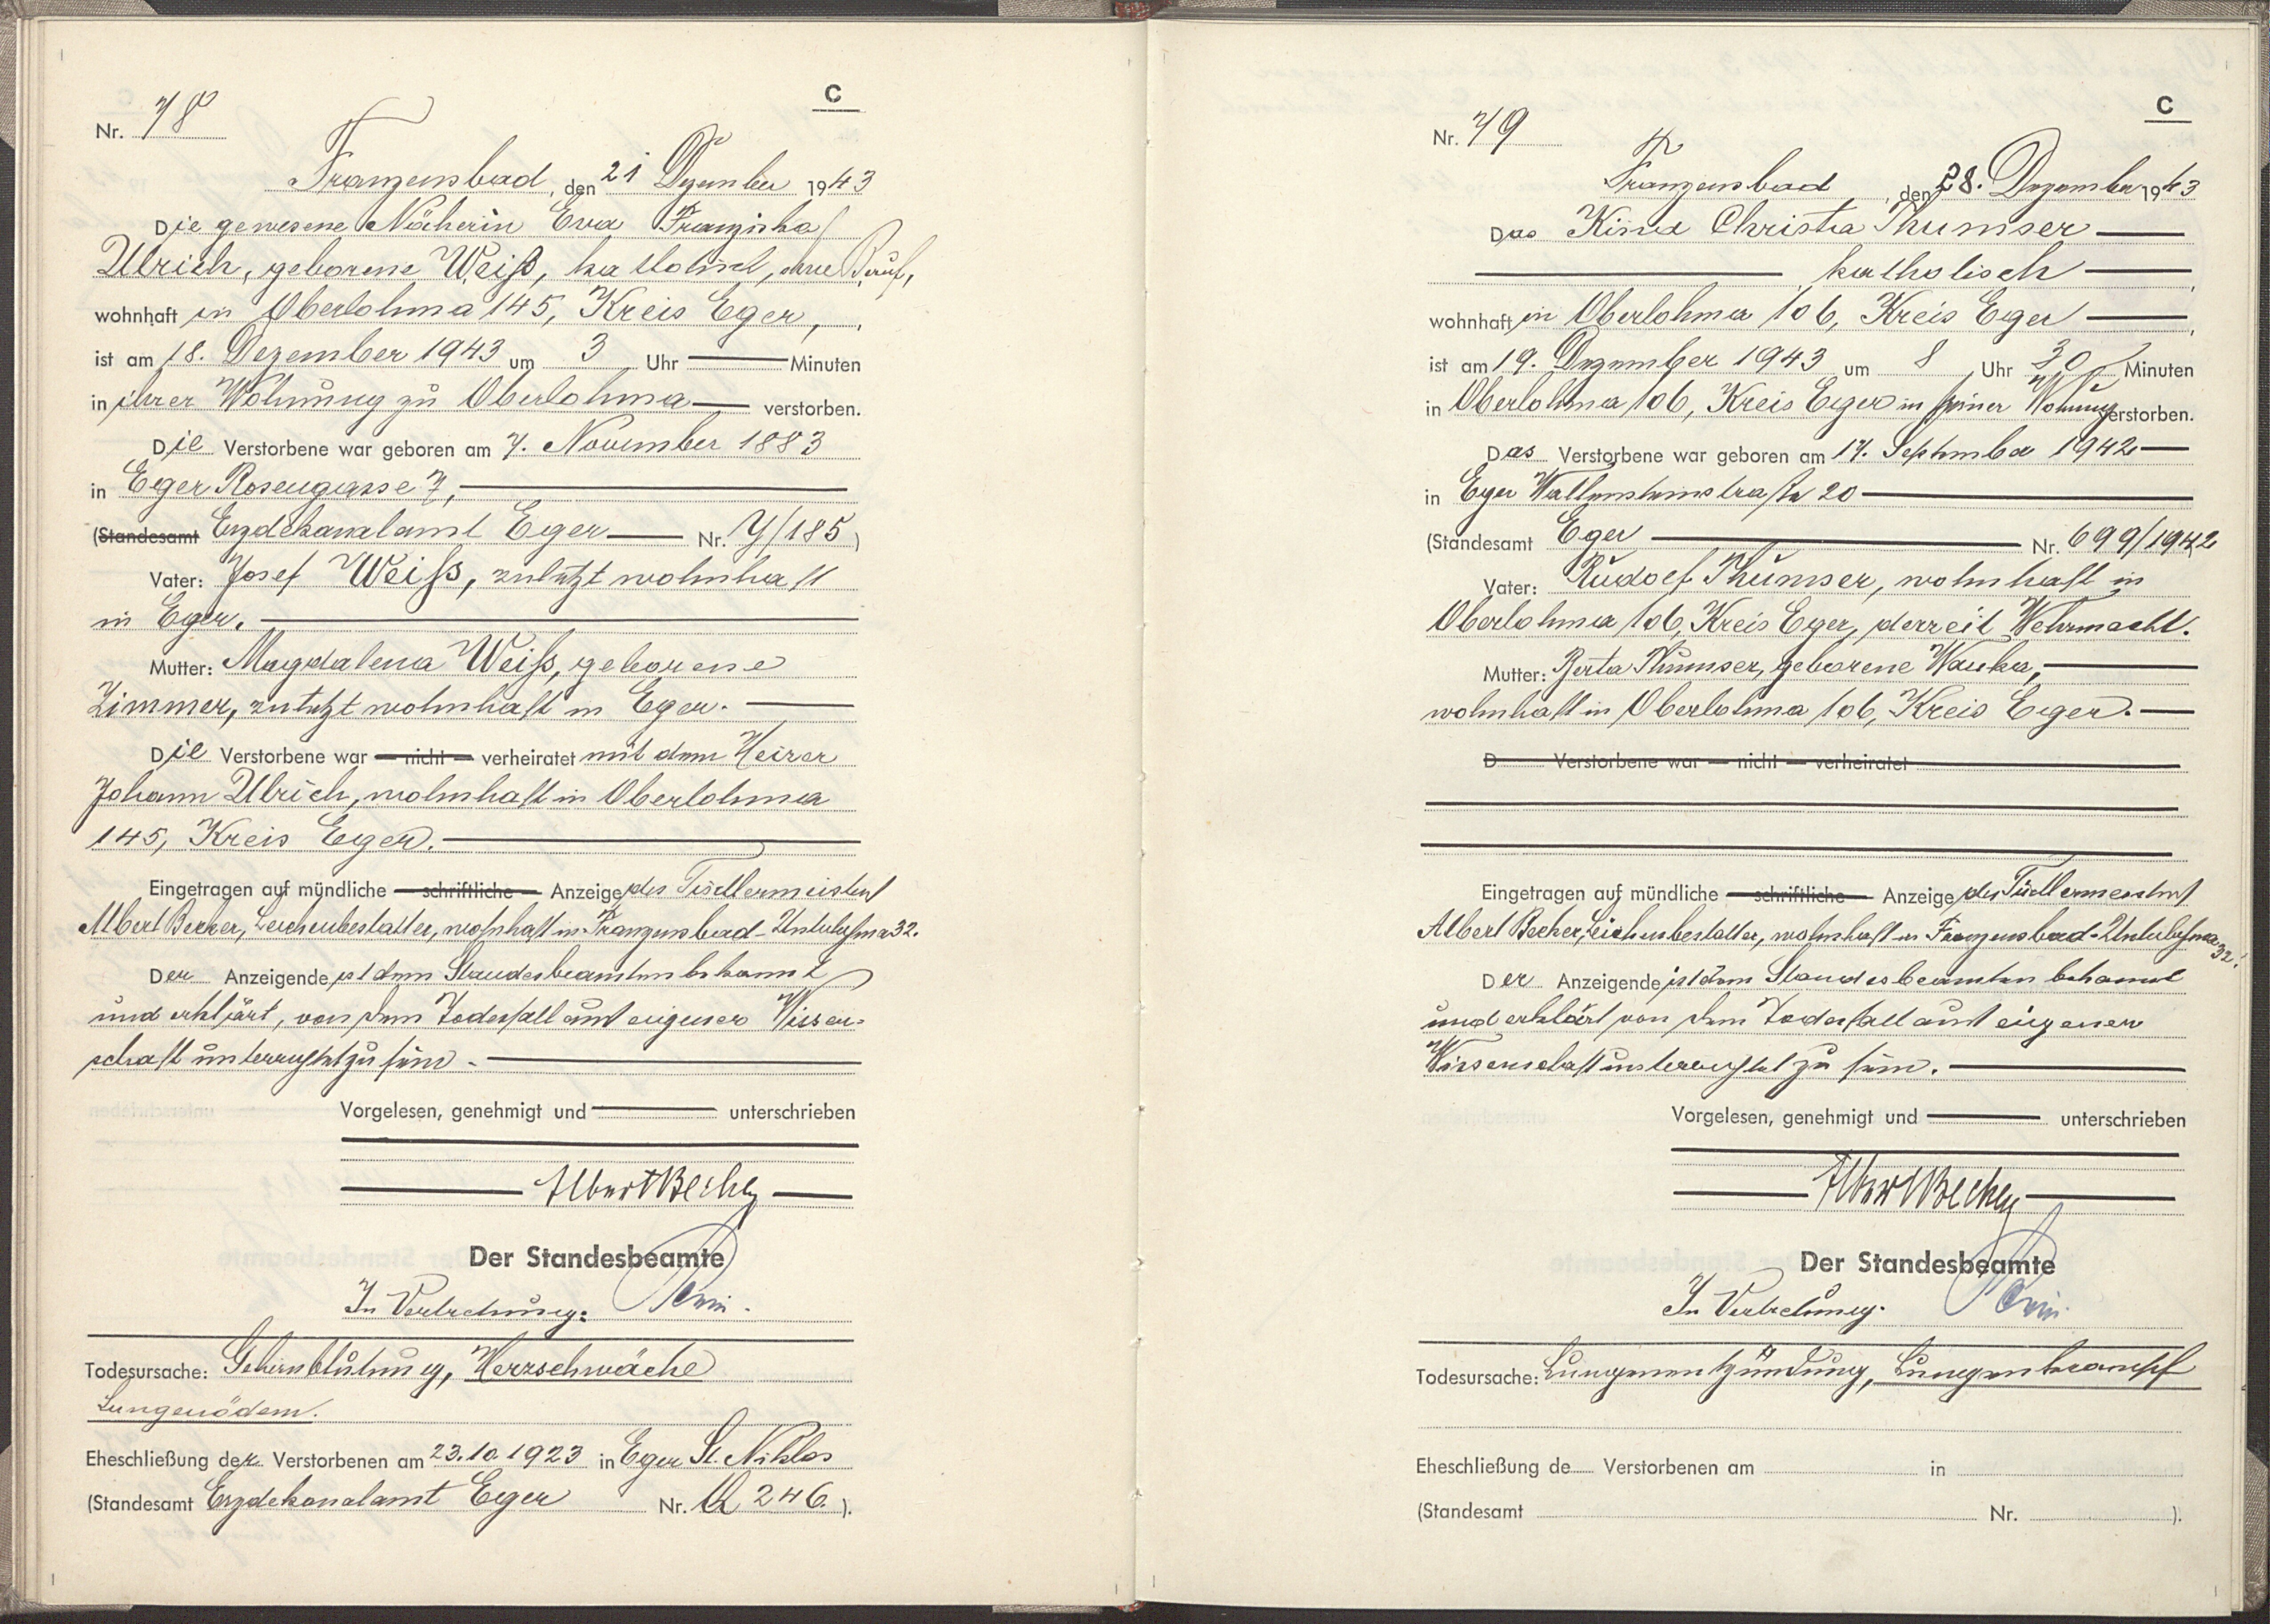 C
Nr. 78
Franzensbad, den 21 Dezember 1943
Die gewesene Näherin Eva Franziska
Ulrich, geborene Weiß, katholisch, ohne Beruf,
wohnhaft in Oberlohma 145, Kreis Eger,
ist am 18. Dezember 1943 um 3 Uhr Minuten
in ihrer Wohnung zu Oberlohma verstorben.
Die Verstorbene war geboren am 7. November 1883
in Eger Rosengasse 7,
(Standesamt Erzdekanalamt Eger Nr. Y/185)
Vater: Josef Weiß, zuletzt wohnhaft
in Eger.
Mutter: Magdalena Weiß, geborene
Zimmer, zuletzt wohnhaft in Eger.
Die Verstorbene war nicht verheiratet mit dem Heizer
Johann Ulrich, wohnhaft in Oberlohma
145, Kreis Eger.
Eingetragen auf mündliche schriftliche Anzeige des Tischlermeisters
Albert Becher, Leichenbestatter, wohnhaft in Franzensbad-Unterlohma 32.
Der Anzeigende ist dem Standesbeamten bekannt
und erklärt, von dem Todesfall aus eigener Wissen-
schaft unterrichtet zu sein.
Vorgelesen, genehmigt und unterschrieben
Albert Becher
Der Standesbeamte
In Vertretung:
Todesursache: Gehirnblutung, Herzschwäche
Lungenödem.
Eheschließung der Verstorbenen am 23.10.1923 in Eger St. Niklas
(Standesamt Erzdekanalamt Eger Nr. 246).
C
Nr. 79
Franzensbad, den 28. Dezember 1943
Das Kind Christa Thumser
katholisch
wohnhaft in Oberlohma 106, Kreis Eger
ist am 19. Dezember 1943 um 8 Uhr 30 Minuten
in Oberlohma 106, Kreis Eger in seiner Wohnung verstorben.
Das Verstorbene war geboren am 17. September 1942
in Eger Wallensteinstraße 20
(Standesamt Eger Nr. 699/1942
Vater: Rudolf Thumser, wohnhaft in
Oberlohma 106, Kreis Eger, derzeit Wehrmacht.
Mutter: Berta Thumser, geborene Wanka,
wohnhaft in Oberlohma 106, Kreis Eger.
D Verstorbene war nicht verheiratet
Eingetragen auf mündliche schriftliche Anzeige des Tischlermeisters
Albert Becher, Leichenbestatter, wohnhaft in Franzensbad-Unterlohma 32.
Der Anzeigende ist dem Standesbeamten bekannt
und erklärt von dem Todesfall aus eigener
Wissenschaft unterrichtet zu sein.
Vorgelesen, genehmigt und unterschrieben
Albert Becher
Der Standesbeamte
In Vertretung:
Todesursache: Lungenentzündung, Lungenkrampf
Eheschließung de Verstorbenen am in
(Standesamt Nr. ).